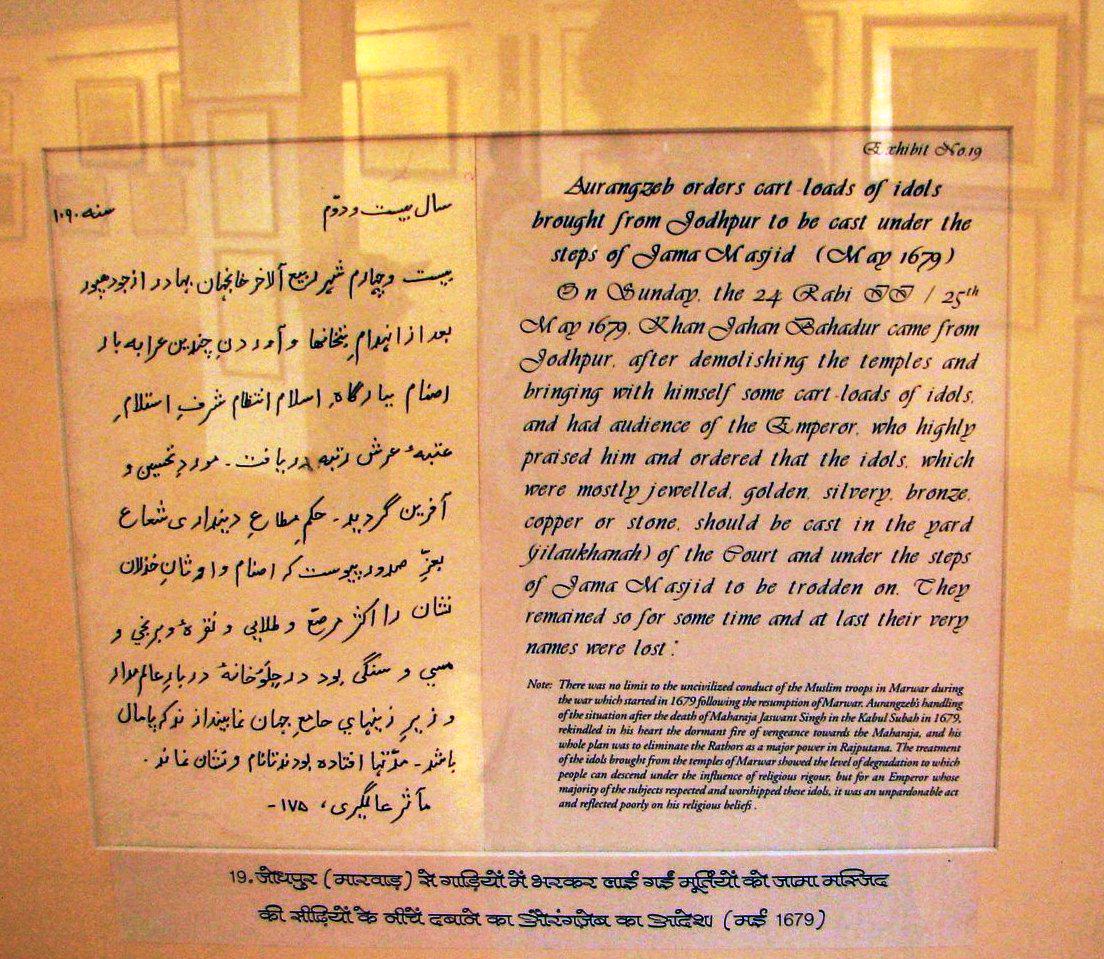 Exhibit No.19
سال بیست و دوّم
سنه ۱۰۹۰
بیست و چهارم شهر ربیع الآخر خانجهان بهادر از جودهپور
بعد از انهدامِ بتخانها و آوردنِ چندین عرابه بار
اصنام ببارگاهِ اسلام انتظام شرفِ استلامِ
عتبهٔ عرش رتبه دریافت - موردِ تحسین و
آفرین گردید - حکمِ مطاعِ دینداری شعاع
بعزِّ صدور پیوست که اصنام و اوثانِ خذلان
نشان را اکثر مرصّع و طلایی و نقرهٔ و برنجی و
مسی و سنگی بود در جلَوُخانهٔ دربارِ عالم مدار
و زیرِ زینهایِ جامعِ جهان نما بیندازند که پامال
باشد - مدّتها افتاده بودند تا نام و نشان نماند ·
مآثر عالمگیری، ۱۷۵ -
Aurangzeb orders cart-loads of idols
brought from Jodhpur to be cast under the
steps of Jama Masjid (May 1679)
On Sunday, the 24 Rabi II / 25th
May 1679, Khan Jahan Bahadur came from
Jodhpur, after demolishing the temples and
bringing with himself some cart-loads of idols,
and had audience of the Emperor, who highly
praised him and ordered that the idols, which
were mostly jewelled, golden, silvery, bronze,
copper or stone, should be cast in the yard
(jilaukhanah) of the Court and under the steps
of Jama Masjid to be trodden on. They
remained so for some time and at last their very
names were lost :
Note: There was no limit to the uncivilized conduct of the Muslim troops in Marwar during
the war which started in 1679 following the resumption of Marwar. Aurangzeb's handling
of the situation after the death of Maharaja Jaswant Singh in the Kabul Subah in 1679,
rekindled in his heart the dormant fire of vengeance towards the Maharaja, and his
whole plan was to eliminate the Rathors as a major power in Rajputana. The treatment
of the idols brought from the temples of Marwar showed the level of degradation to which
people can descend under the influence of religious rigour, but for an Emperor whose
majority of the subjects respected and worshipped these idols, it was an unpardonable act
and reflected poorly on his religious beliefs .
19. जोधपुर (मारवाड़) से गाड़ियों में भरकर लाई गईं मूर्तियों को जामा मस्जिद
की सीढ़ियों के नीचें दबाने का औरंगज़ेब का आदेश। (मई 1679)